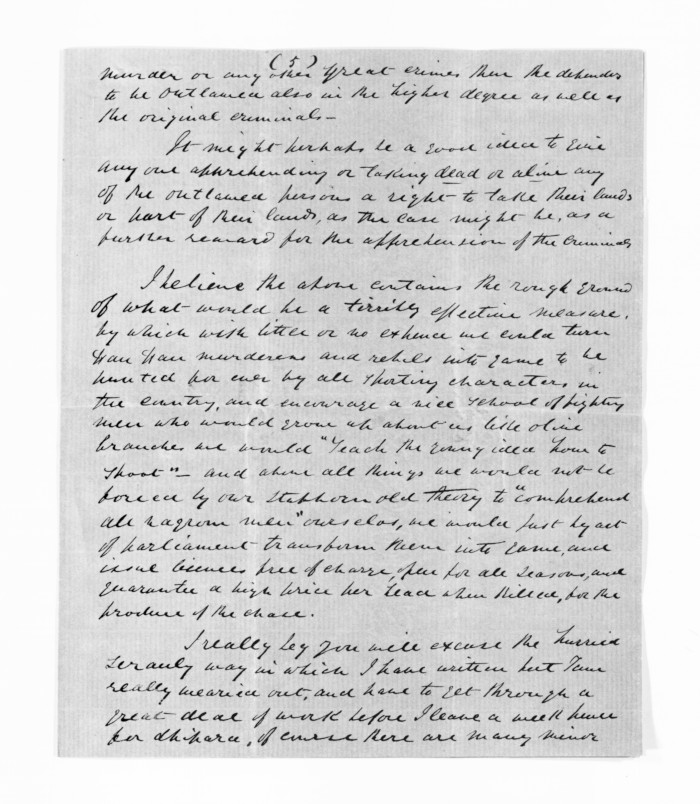 (5)
murder or any other great crimes then the defender
to be outlawed also in the higher degree as well as
the original criminals –
It might perhaps be a good idea to give
any one apprehending or taking dead or alive any
of the outlawed persons a right to take their lands
or part of their lands, as the case might be, as a
further reward for the apprehension of the Criminals
I believe the above contains the rough ground
of what would be a terribly effective measure,
by which with little or no expence we could turn
Hau Hau murderers and rebels into game to be
hunted for ever by all sporting characters in
the country, and encourage a nice school of fighting
men who would grow up about us like olive
branches we would "Teach the young idea how to
Shoot" – and above all things we would not be
forced by our stubborn old theory to "comprehend
all vagrom men" ourselves, we would just by act
of parliament transform them into game, and
issue licences free of charge, open for all seasons, and
guarantee a high price per head when killed, for the
produce of the chase.
I really beg you will excuse the hurried
way in which I have written but I am
really wearied out, and have to get through a
great deal of work before I leave a week hence
for , of course there are many minor